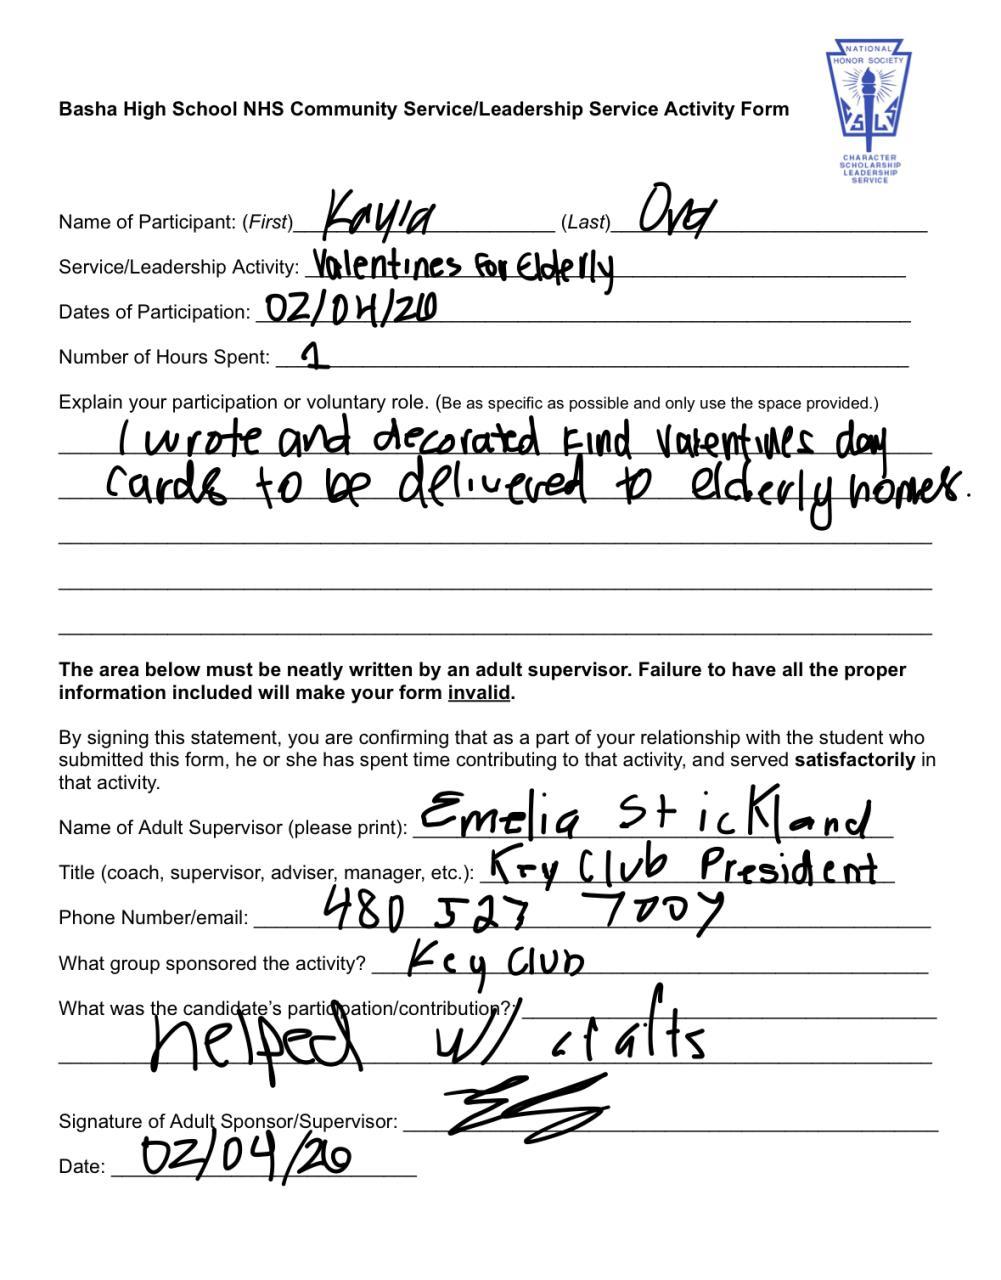 NATIONAL
HONOR SOCIETY
SLS
CHARACTER
SCHOLARSHIP
LEADERSHIP
SERVICE
Basha High School NHS Community Service/Leadership Service Activity Form
Name of Participant: (First) Kayla (Last)
Service/Leadership Activity: Valentines For Elderly
Dates of Participation: 02/04/26
Number of Hours Spent: 1
Explain your participation or voluntary role. (Be as specific as possible and only use the space provided.)
I wrote and decorated kind valentines day
cards to be delivered to elderly homes.
The area below must be neatly written by an adult supervisor. Failure to have all the proper
information included will make your form invalid.
By signing this statement, you are confirming that as a part of your relationship with the student who
submitted this form, he or she has spent time contributing to that activity, and served satisfactorily in
that activity.
Name of Adult Supervisor (please print): Emelia Stickland
Title (coach, supervisor, adviser, manager, etc.): Key Club President
Phone Number/email: 480 527 7007
What group sponsored the activity? Key Club
What was the candidate's participation/contribution?:
helped w/ crafts
Signature of Adult Sponsor/Supervisor:
Date: 02/04/26